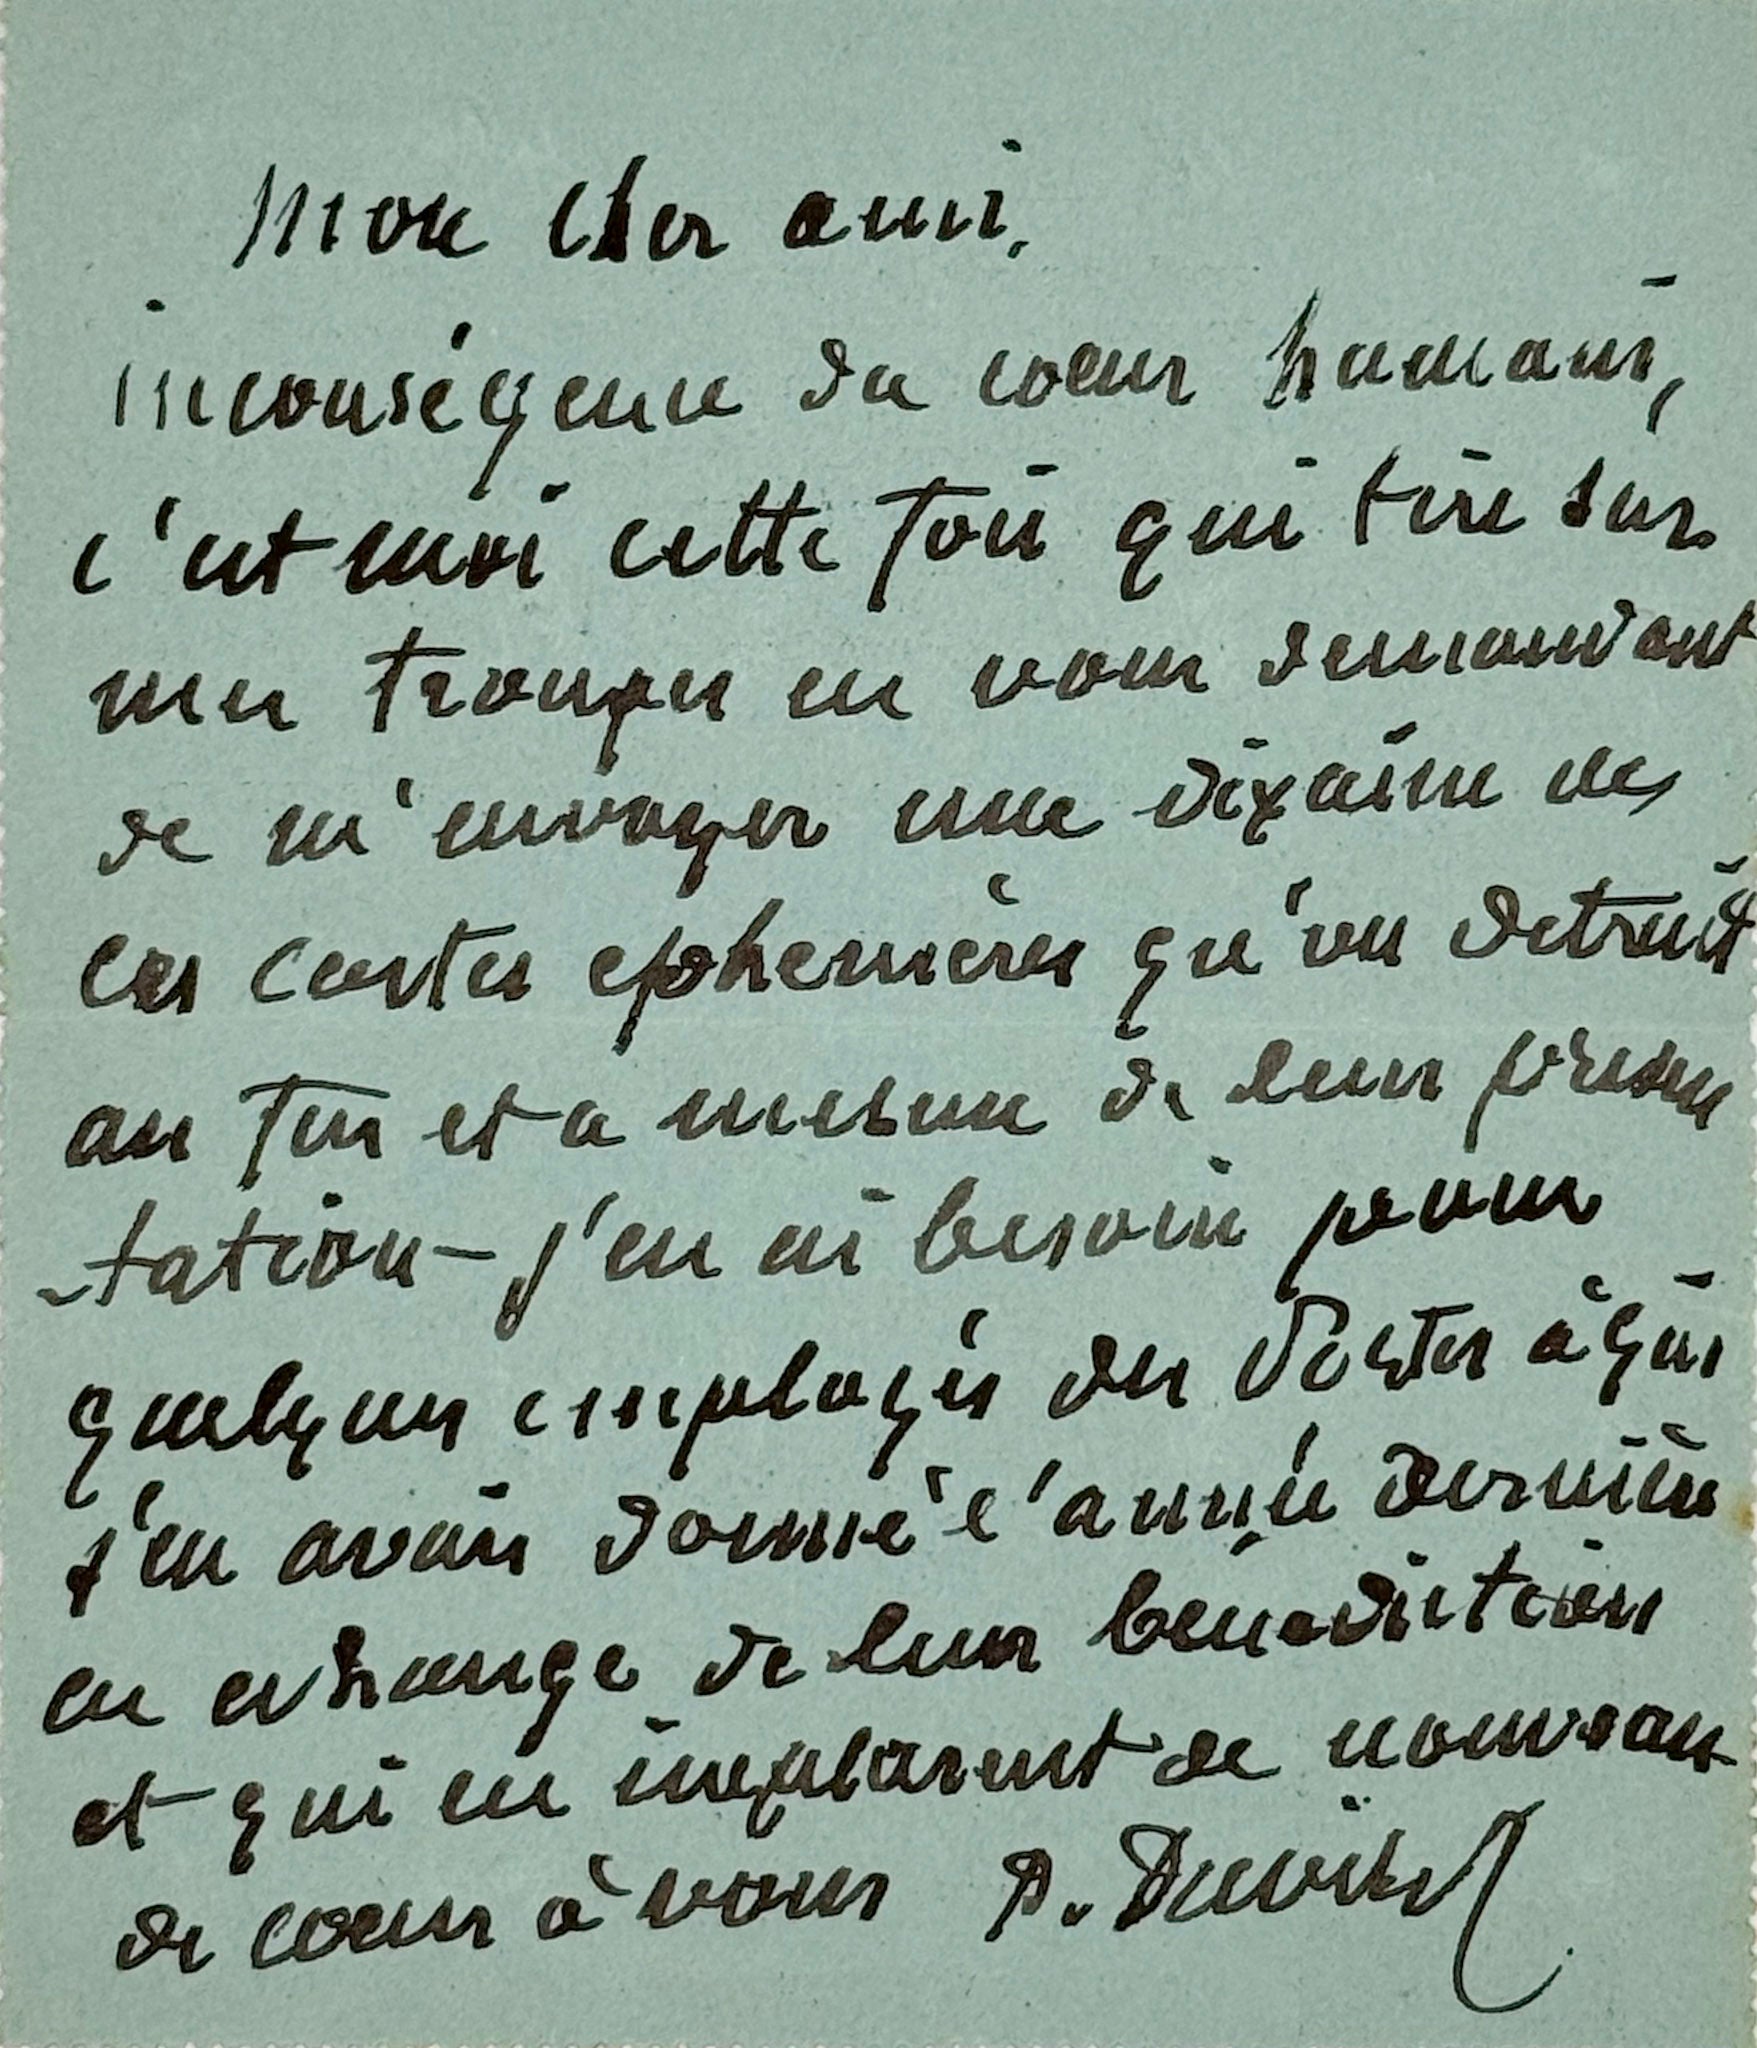 Mon cher ami,
inconséqence du cœur humain,
c'est moi cette fois qui tire sur
mes troupes en vous demandant
de m'envoyer une dixaine de
ces cartes ephemères qu'on detruit
au fur et a mesure de leur présen
-tation - j'en ai besoin pour
quelques employés des Postes à qui
j'en avais donné l'année dernière
en echange de leur bénédiction
et qui en implorent de nouveau
de cœur à vous A.